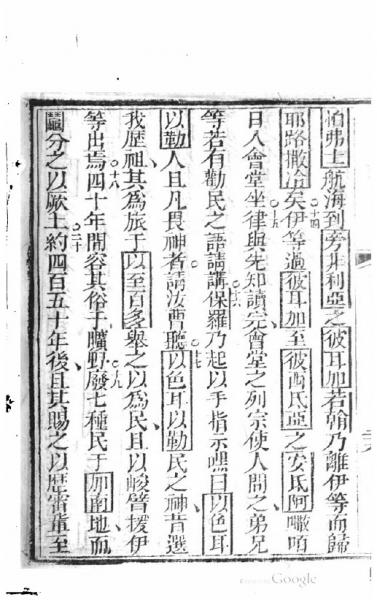 怕弗土航海到旁非利亞之彼耳加若翰乃離伊等而歸
耶路撒冷矣○十四伊等過彼耳加至彼西氏亞之安氐阿嗷咟
日入會堂坐○十五律與先知讀完會堂之列宗使人問之弟兄
等若有勸民之語請講○十六保羅乃起以手指示嘿曰以色耳
以勒人且凡畏神者請汝曹聽○十七以色耳以勒民之神昔選
我歷祖其為旅于以至百多舉之以為民且以峻臂援伊
等出焉○十八四十年間容其俗于曠野○十九廢七種民于加南地而
鬮分之以厥土○二十約四百五十年後且其賜之以歷審輩至
Google